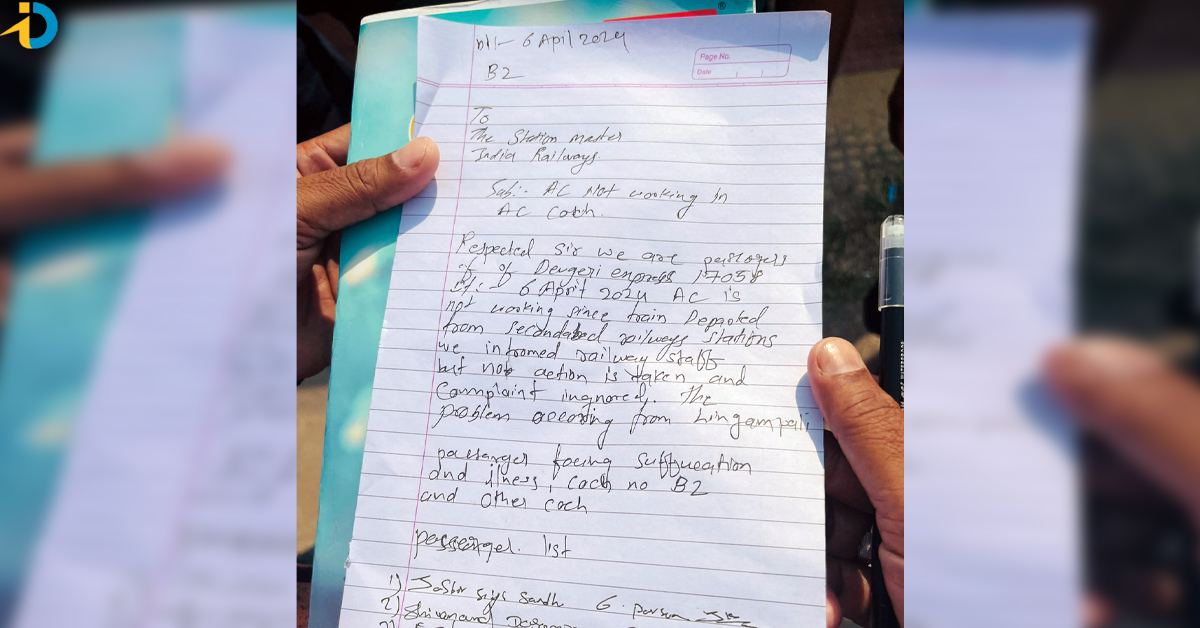 iD
®
Dt:- 6 April 2024
Page No.
Date
B2
To
The Station master
India Railways.
Sub:- AC Not working in
AC Coch.
Respected Sir we are passagers
of of Devgeri express 17058
Dt:- 6 April 2024 AC is
not working since train Departed
from secondabed railways stations
we infromed railway staff
but not action is taken and
Complaint ingnored. The
problem accoding from Lingampali
passanger facing suffucation
and illness, coch no B2
and other coch
passenger. list
1) Sandh 6. person
2) Shivanand